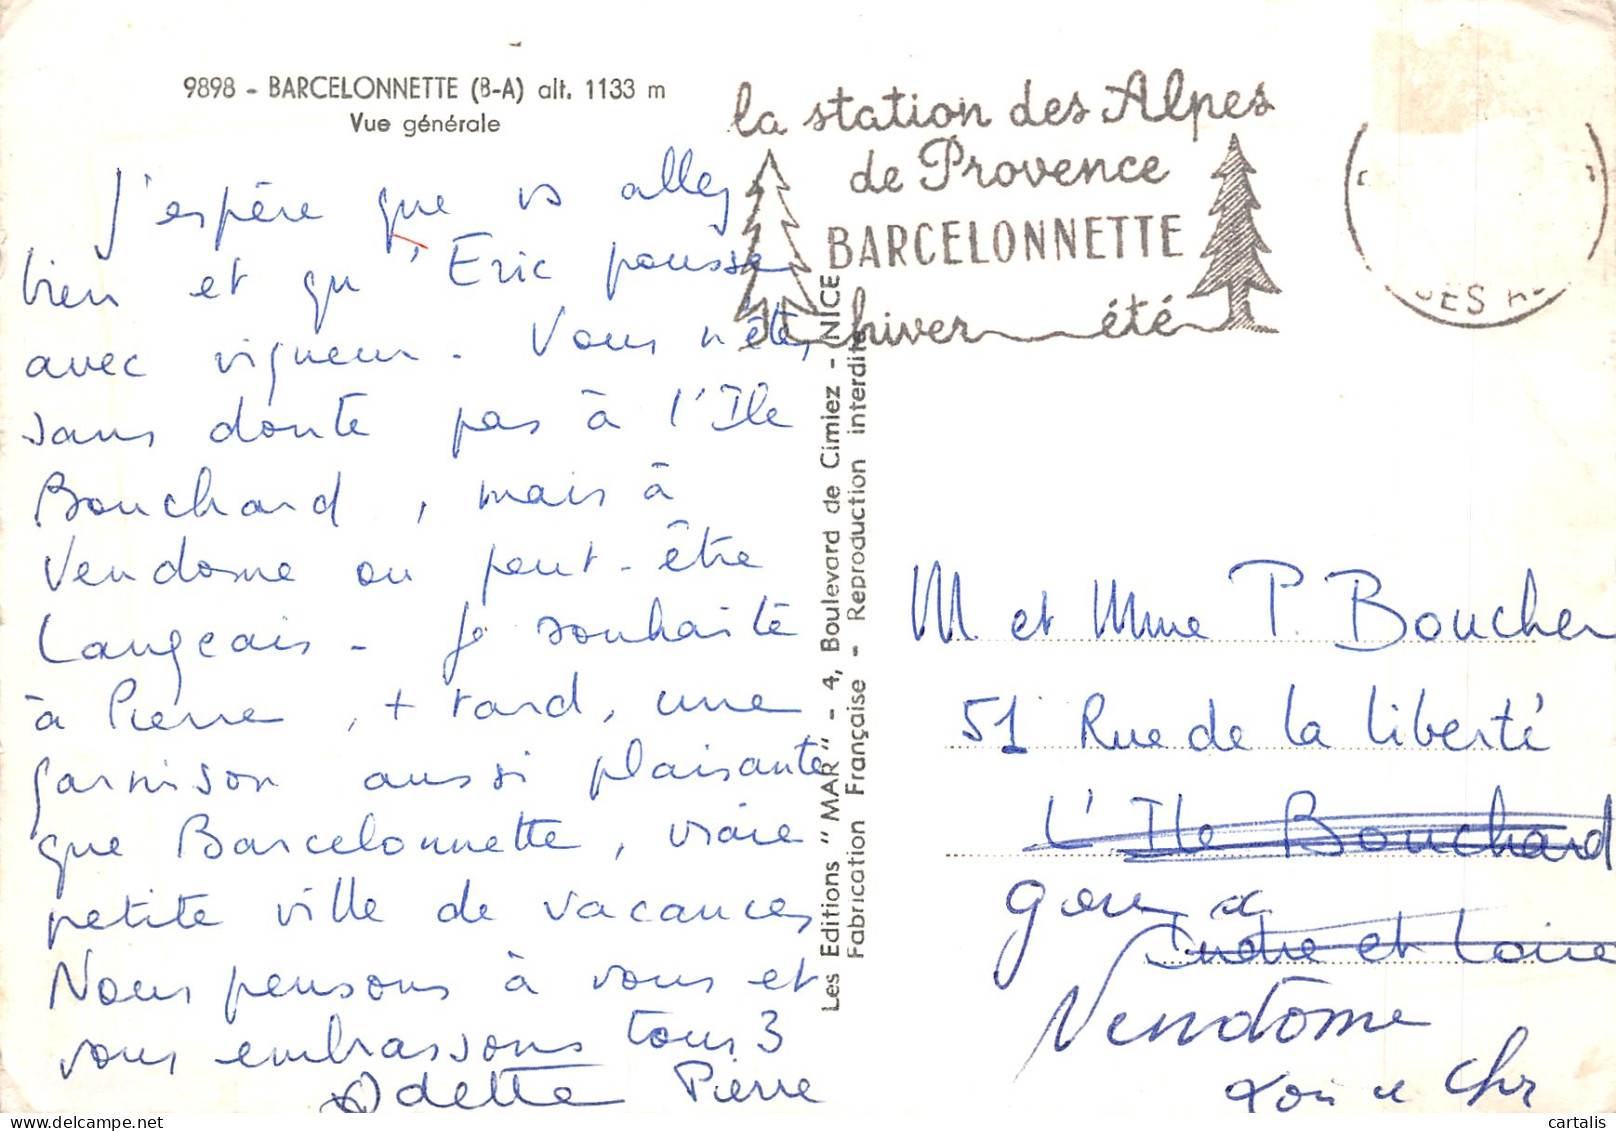 9898 - BARCELONNETTE (B-A) alt. 1133 m
Vue générale
la station des Alpes
de Provence
BARCELONNETTE
hiver été
J'espère que vs allez
bien et qu'Eric pousse
avec vigueur. Vous n'êtes
sans doute pas à l'Ile
Bouchard, mais à
Vendome ou peut-être
Langeais - Je souhaite
à Pierre, + tard, une
garnison aussi plaisante
que Barcelonnette, vraie
petite ville de vacances
Nous pensons à vous et
vous embrassons tous 3
Odette Pierre
Les Editions "MAR" - 4, Boulevard de Cimiez - NICE
Fabrication Française - Reproduction interdite
M et Mme P. Boucher
51 Rue de la liberté
L'Ile Bouchard
Indre et Loire
Vendôme
Loir et Cher
cartalis